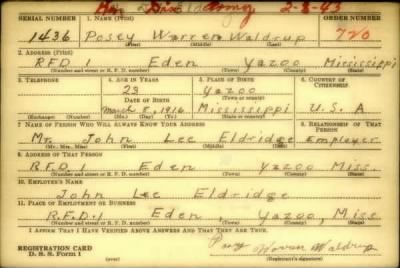 Dis Army 2-8-43
SERIAL NUMBER 1. NAME (Print) ORDER NUMBER
1436 Posey Warren Waldrup 720
(First) (Middle) (Last)
2. ADDRESS (Print)
RFD 1 Eden Yazoo Mississippi
(Number and street or R. F. D. number) (Town) (County) (State)
3. TELEPHONE 4. AGE IN YEARS 5. PLACE OF BIRTH 6. COUNTRY OF CITIZENSHIP
23 Yazoo
DATE OF BIRTH (Town or county)
March 8, 1916 Mississippi U. S. A
(Exchange) (Number) (Mo.) (Day) (Yr.) (State or country)
7. NAME OF PERSON WHO WILL ALWAYS KNOW YOUR ADDRESS 8. RELATIONSHIP OF THAT PERSON
Mr. John Lee Eldridge Employer
(Mr., Mrs., Miss) (First) (Middle) (Last)
9. ADDRESS OF THAT PERSON
RFD 1 Eden Yazoo Miss.
(Number and street or R. F. D. number) (Town) (County) (State)
10. EMPLOYER'S NAME
John Lee Eldridge
11. PLACE OF EMPLOYMENT OR BUSINESS
R.F.D.1 Eden, Yazoo, Miss
(Number and street or R. F. D. number) (Town) (County) (State)
I AFFIRM THAT I HAVE VERIFIED ABOVE ANSWERS AND THAT THEY ARE TRUE.
REGISTRATION CARD
D. S. S. Form 1
Posey Warren Waldrup
(Registrant's signature)